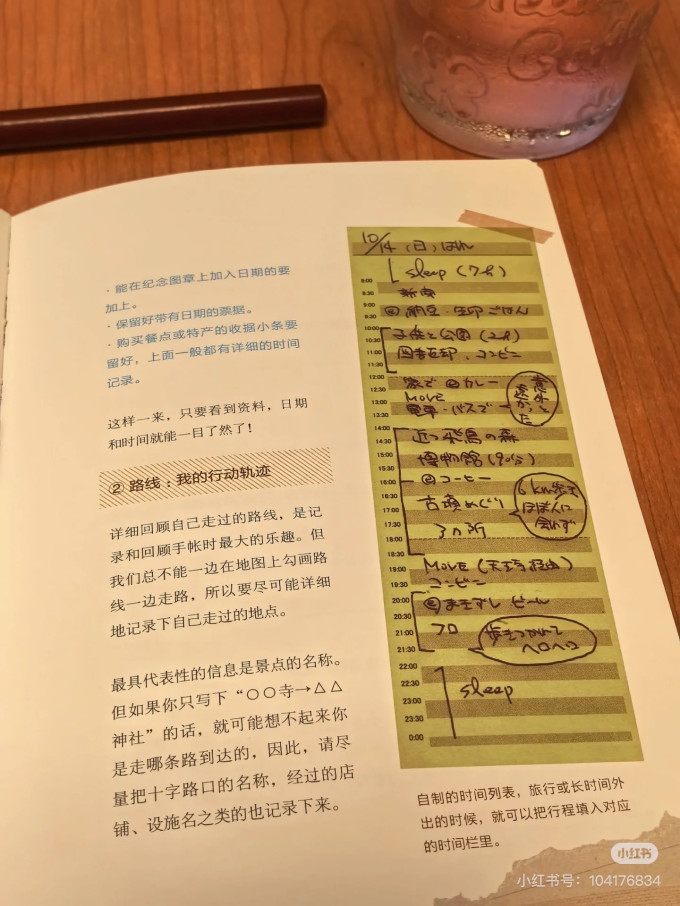 ·能在纪念图章上加入日期的要
加上。
·保留好带有日期的票据。
·购买餐点或特产的收据小条要
留好，上面一般都有详细的时间
记录。
这样一来，只要看到资料，日期
和时间就能一目了然了！
② 路线：我的行动轨迹
详细回顾自己走过的路线，是记
录和回顾手帐时最大的乐趣。但
我们总不能一边在地图上勾画路
线一边走路，所以要尽可能详细
地记录下自己走过的地点。
最具代表性的信息是景点的名称。
但如果你只写下“〇〇寺→△△
神社”的话，就可能想不起来你
是走哪条路到达的，因此，请尽
量把十字路口的名称，经过的店
铺、设施名之类的也记录下来。
10/14（日）はれ
sleep（7h）
8:00
8:30 新聞
9:00
9:30 納豆・生卵ごはん
10:00
10:30 子供と公園（2h）
11:00 コンビニ
12:00
12:30 家で カレー
13:00 MOVE
13:30 電車・バスで
意外と遠かった
14:00
14:30 近つ飛鳥の森
15:00
15:30 博物館（90分）
16:00 コーヒー
16:30
17:00 古墳めぐり
17:30
18:00 3カ所
18:30
6km歩きほぼ人に会わず
19:00 MOVE（天王寺経由）
19:30 コンビニ
20:00
20:30 ビール
21:00 フロ
21:30
歩きつかれてヘロヘロ
22:00
22:30 sleep
23:00
23:30
0:00
自制的时间列表，旅行或长时间外
出的时候，就可以把行程填入对应
的时间栏里。
小红书
小红书号：104176834